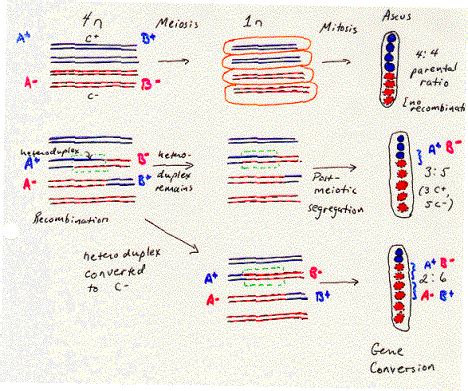 4n Meiosis 1n Mitosis Ascus
A+ C+ B+
A- B-
C-
4:4
parental
ratio
[no
recombination
heteroduplex
A+ B-
A- B+
Recombination
hetero-
duplex
remains
Post-
meiotic
segregation
A+ B-
3:5
(3 C+,
5 C-)
heteroduplex
converted
to C-
A+ B-
A- B+
A+ B-
2:6
A- B+
Gene
Conversion